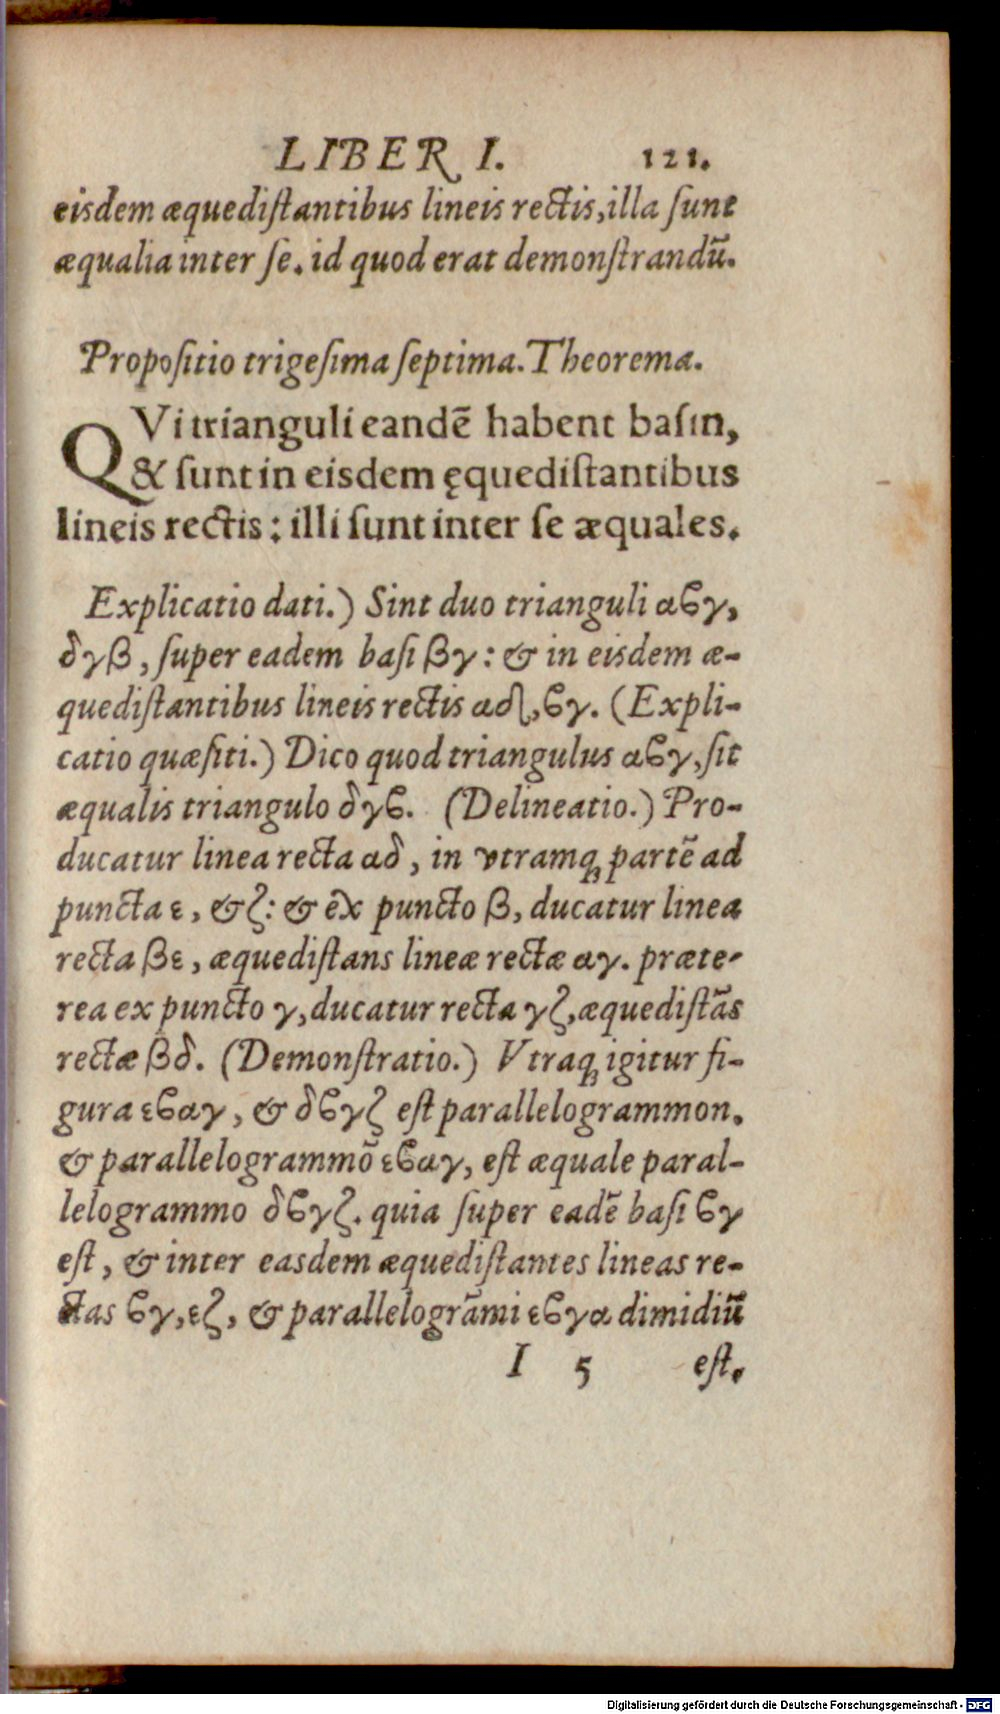 LIBER I. 121.
eisdem æquediſtantibus lineis rectis, illa ſunt
æqualia inter ſe. id quod erat demonſtrandū.
Propoſitio trigeſima ſeptima. Theorema.
QVi trianguli eandē habent baſin,
& ſunt in eisdem ęquediſtantibus
lineis rectis: illi ſunt inter ſe æquales.
Explicatio dati.) Sint duo trianguli αϐγ,
δγβ, ſuper eadem baſi βγ: & in eisdem æ-
quediſtantibus lineis rectis αδ, ϐγ. (Expli-
catio quæſiti.) Dico quod triangulus αϐγ, ſit
æqualis triangulo δγϐ. (Delineatio.) Pro-
ducatur linea recta αδ, in vtramq; partē ad
puncta ε, & ζ: & ex puncto β, ducatur linea
recta βε, æquediſtans lineæ rectæ αγ. præte-
rea ex puncto γ, ducatur recta γζ, æquediſtās
rectæ βδ. (Demonſtratio.) Vtraq; igitur fi-
gura εϐαγ, & δϐγζ eſt parallelogrammon.
& parallelogrammō εϐαγ, eſt æquale paral-
lelogrammo δϐγζ. quia ſuper eadē baſi ϐγ
eſt, & inter easdem æquediſtantes lineas re-
ctas ϐγ, εζ, & parallelogrāmi εϐγα dimidiū
I 5 eſt.
Digitalisierung gefördert durch die Deutsche Forschungsgemeinschaft - DFG